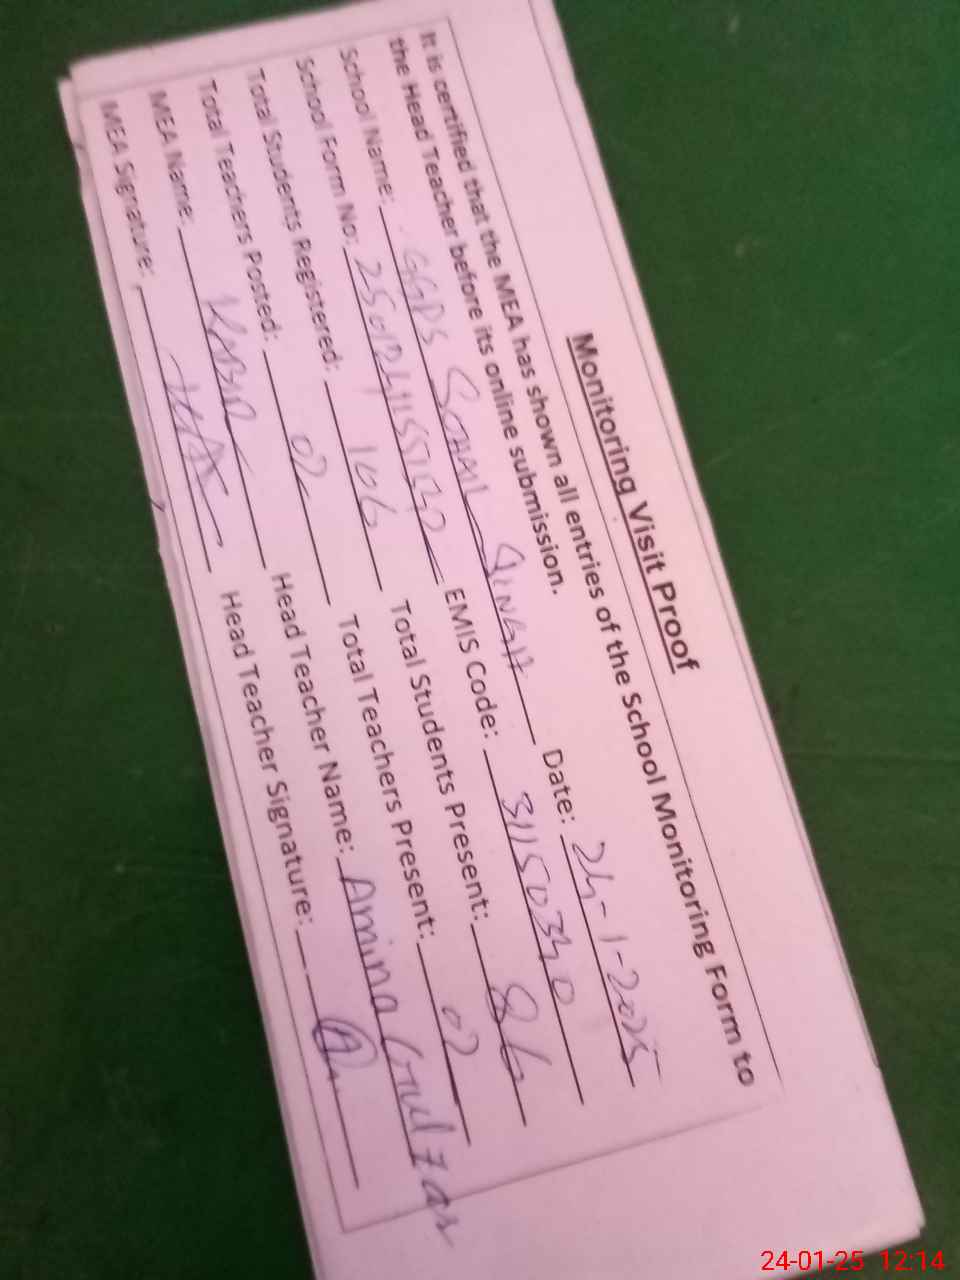 Monitoring Visit Proof
It is certified that the MEA has shown all entries of the School Monitoring Form to
the Head Teacher before its online submission.
School Name: GGPS SINGH Date: 24-1-2025
School Form No: EMIS Code: 31150340
Total Students Registered: 106 Total Students Present: 86
Total Teachers Posted: 02 Total Teachers Present: 02
MEA Name: Head Teacher Name: Amina Gulzar
MEA Signature: Head Teacher Signature:
24-01-25 12:14